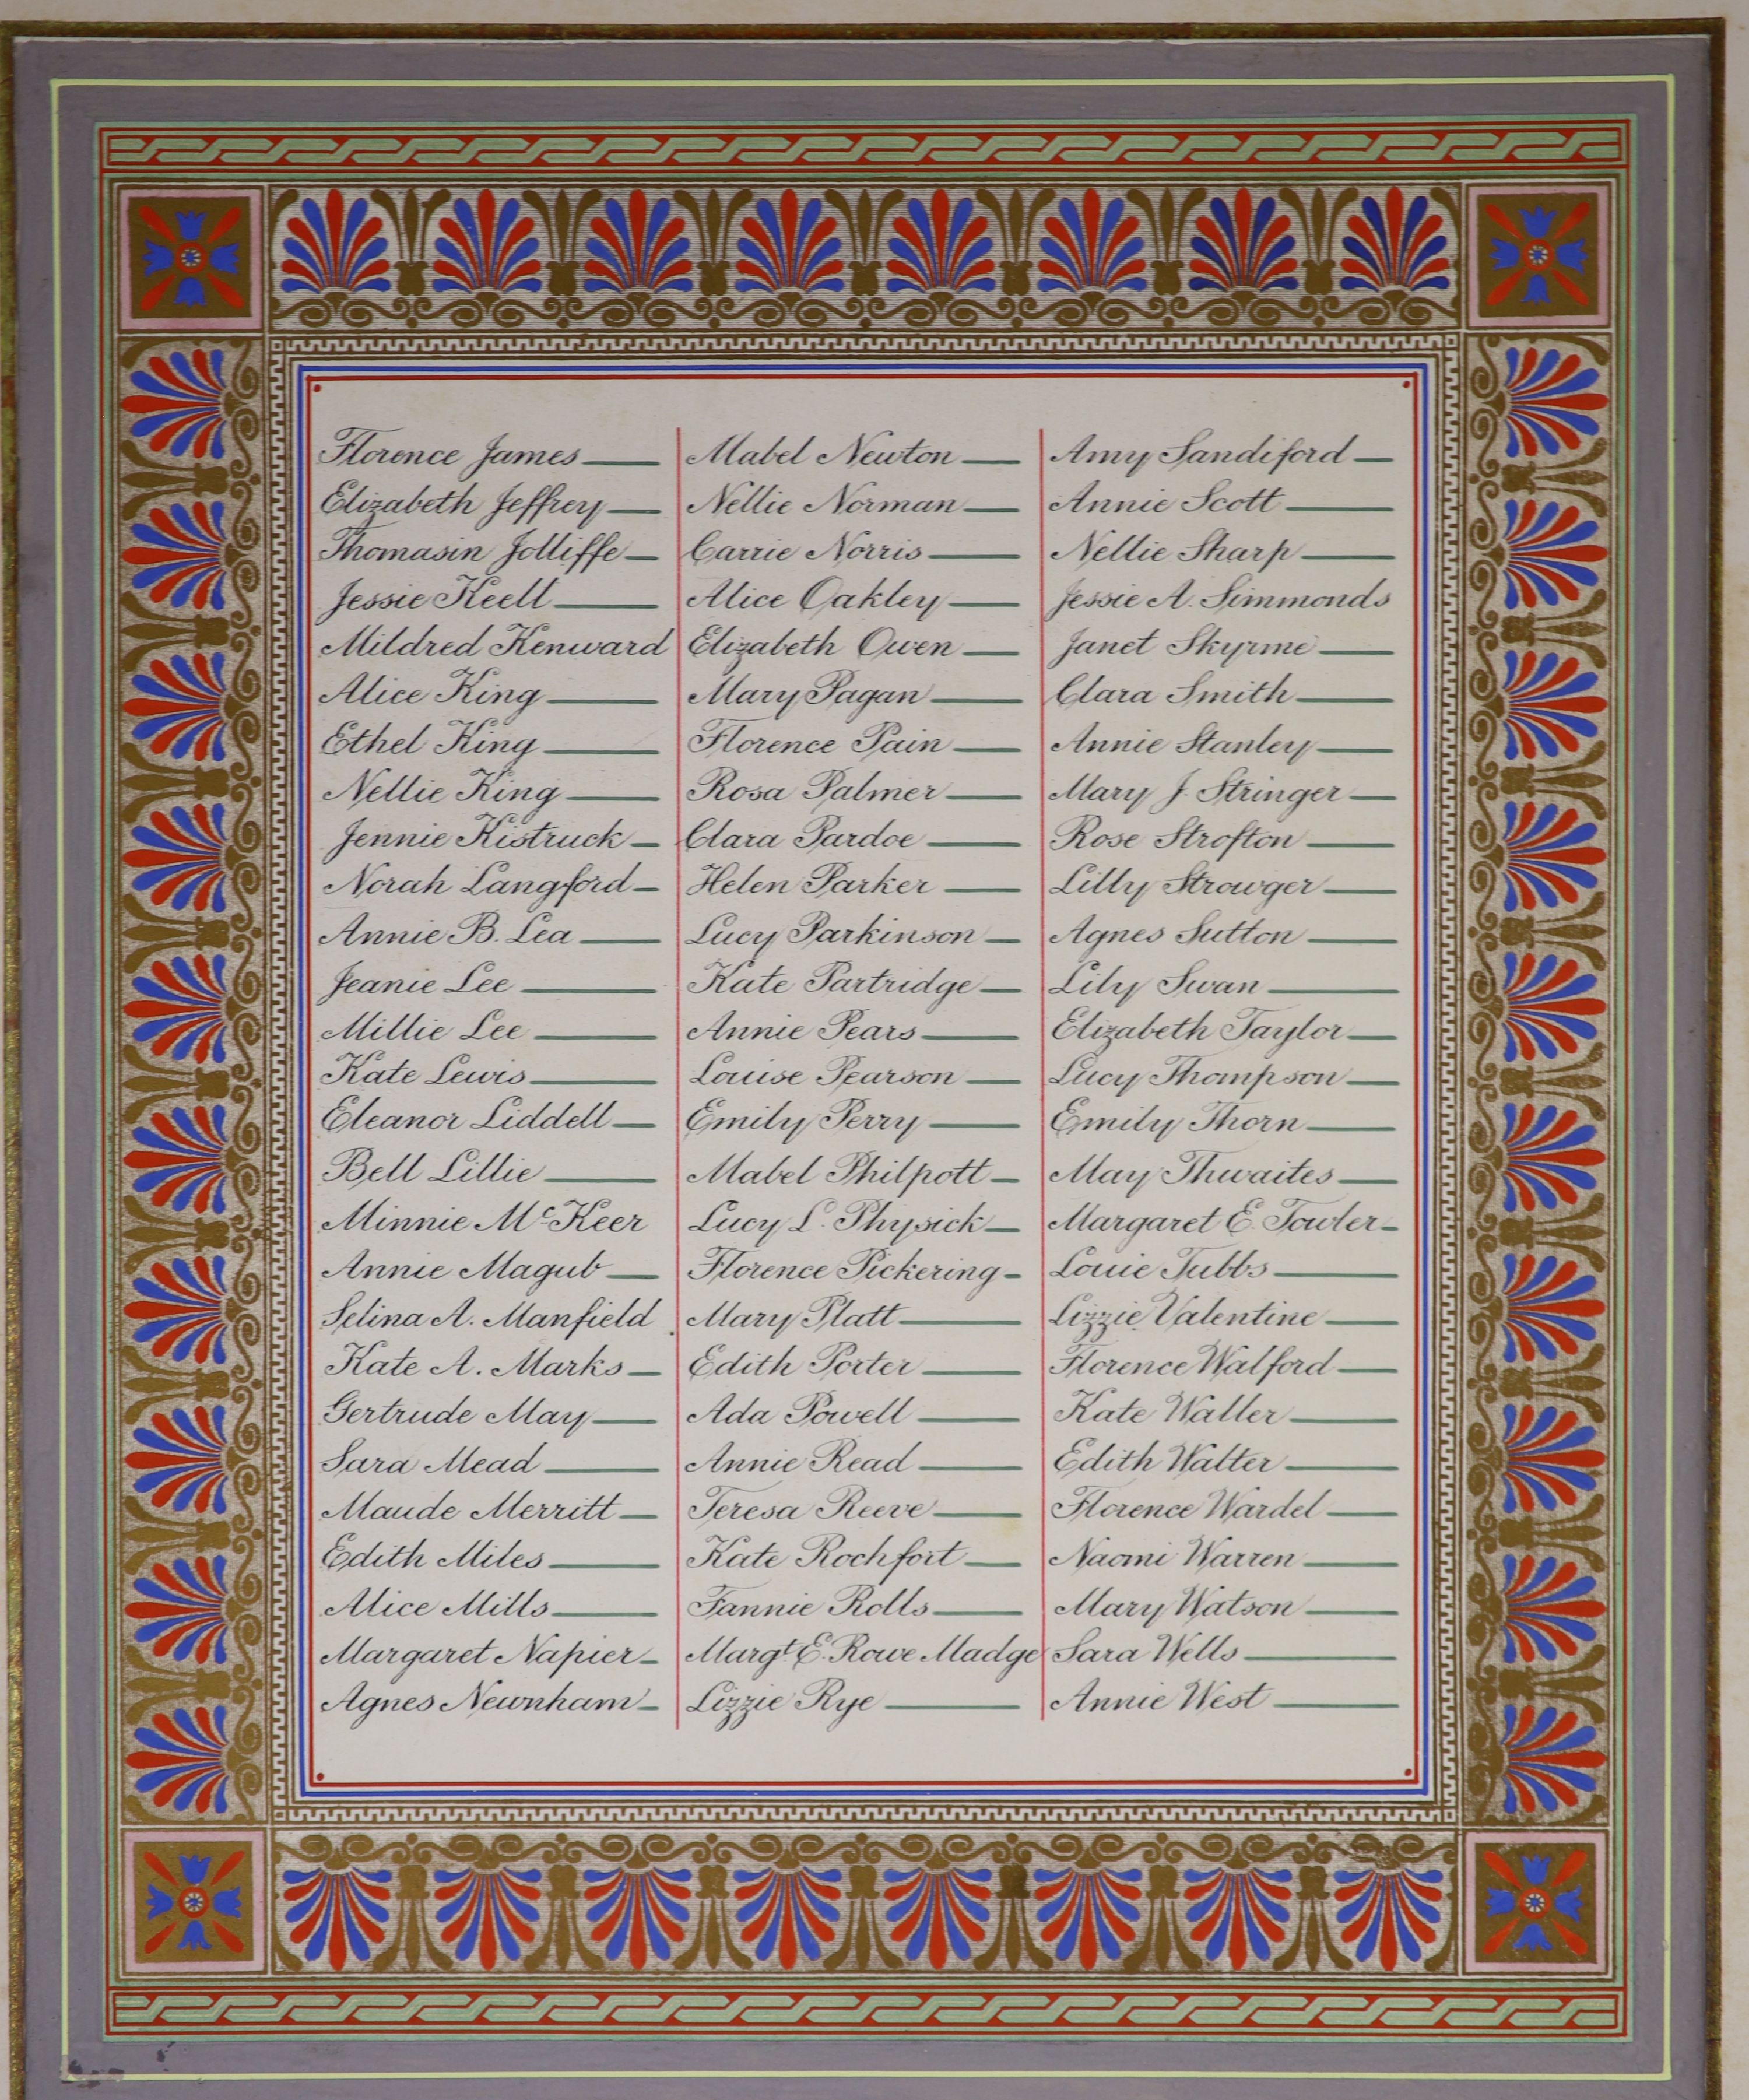 Florence James
Elizabeth Jeffrey
Thomasin Jolliffe
Jessie Keell
Mildred Kenward
Alice King
Ethel King
Nellie King
Jennie Kistruck
Norah Langford
Annie B. Lea
Jeanie Lee
Millie Lee
Kate Lewis
Eleanor Liddell
Bell Lillie
Minnie McKeer
Annie Magub
Selina A. Manfield
Kate A. Marks
Gertrude May
Sara Mead
Maude Merritt
Edith Miles
Alice Mills
Margaret Napier
Agnes Newnham
Mabel Newton
Nellie Norman
Carrie Norris
Alice Oakley
Elizabeth Owen
Mary Pagan
Florence Pain
Rosa Palmer
Clara Pardoe
Helen Parker
Lucy Parkinson
Kate Partridge
Annie Pears
Louise Pearson
Emily Perry
Mabel Philpott
Lucy L. Physick
Florence Pickering
Mary Platt
Edith Porter
Ada Powell
Annie Read
Teresa Reeve
Kate Rochfort
Fannie Rolls
Margt. E. Rowe Madge
Lizzie Rye
Amy Sandiford
Annie Scott
Nellie Sharp
Jessie A. Simmonds
Janet Skyrme
Clara Smith
Annie Stanley
Mary J. Stringer
Rose Strofton
Lilly Strowger
Agnes Sutton
Lily Swan
Elizabeth Taylor
Lucy Thompson
Emily Thorn
May Thwaites
Margaret E. Towler
Louie Tubbs
Lizzie Valentine
Florence Walford
Kate Waller
Edith Walter
Florence Wardel
Naomi Warren
Mary Watson
Sara Wells
Annie West